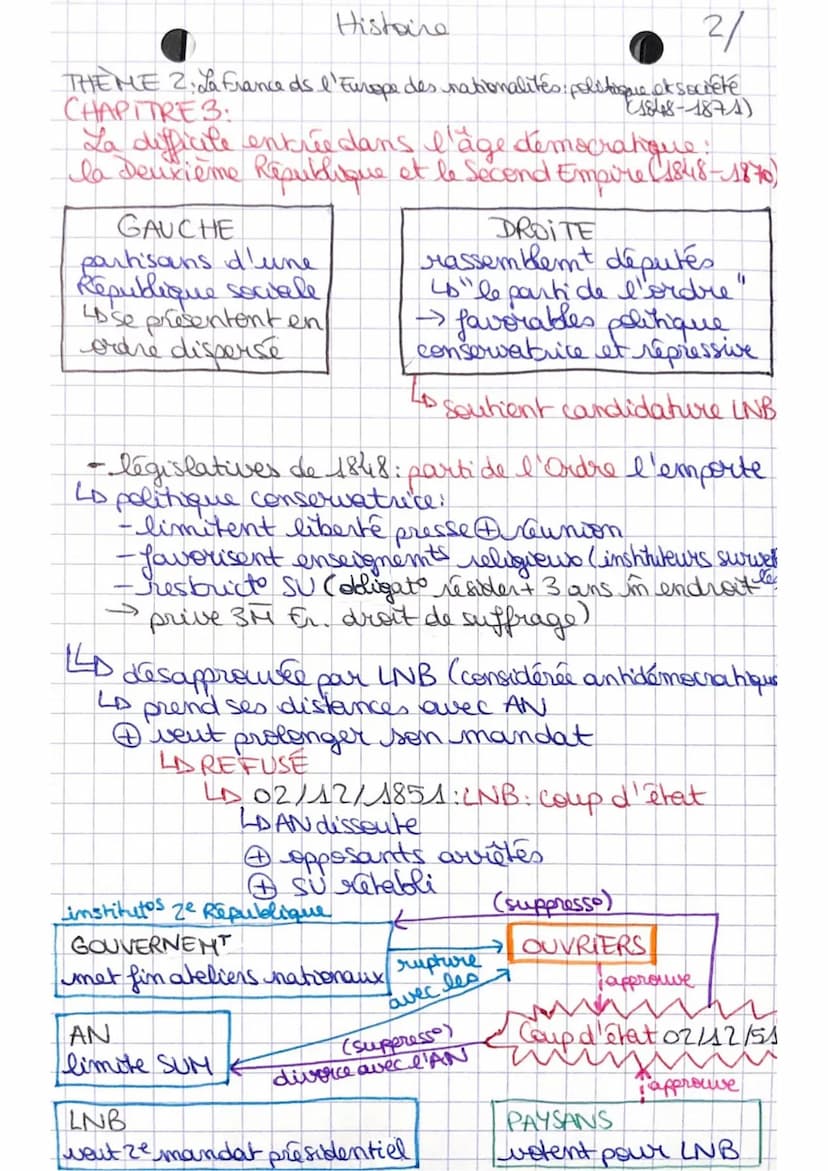 Histoire
2/
THÈME 2: La France ds l'Europe des nationalités: politique et société
(1848-1871)
CHAPITRE 3:
La difficile entrée dans l'âge démocratique:
la Deuxième République et le Second Empire (1848-1870)
GAUCHE
partisans d'une
République sociale
↳ se présentent en
ordre dispersé
DROITE
rassemblemt députés
↳ "le parti de l'ordre"
→ favorables politique
conservatrice et répressive
↳ soutient candidature LNB
- législatives de 1848: parti de l'Ordre l'emporte
↳ politique conservatrice:
- limitent liberté presse ⊕ réunion
- favorisent enseignemts religieux (instituteurs surveil
lés
- restricto SU (obligato résider + 3 ans m̂ endroit
→ prive 3M Fr. droit de suffrage)
↳ désapprouvée par LNB (considérée antidémocratique
↳ prend ses distances avec AN
⊕ veut prolonger son mandat
↳ REFUSÉ
↳ 02/12/1851: LNB: coup d'état
↳ AN dissoute
⊕ opposants arrêtés
⊕ SU rétabli
institutos 2e République
(suppresso)
GOUVERNEMT
met fin ateliers nationaux
rupture
avec les
OUVRIERS
approuve
AN
limite SUM
(suppresso)
divorce avec l'AN
Coup d'état 02/12/51
approuve
LNB
veut 2e mandat présidentiel
PAYSANS
votent pour LNB